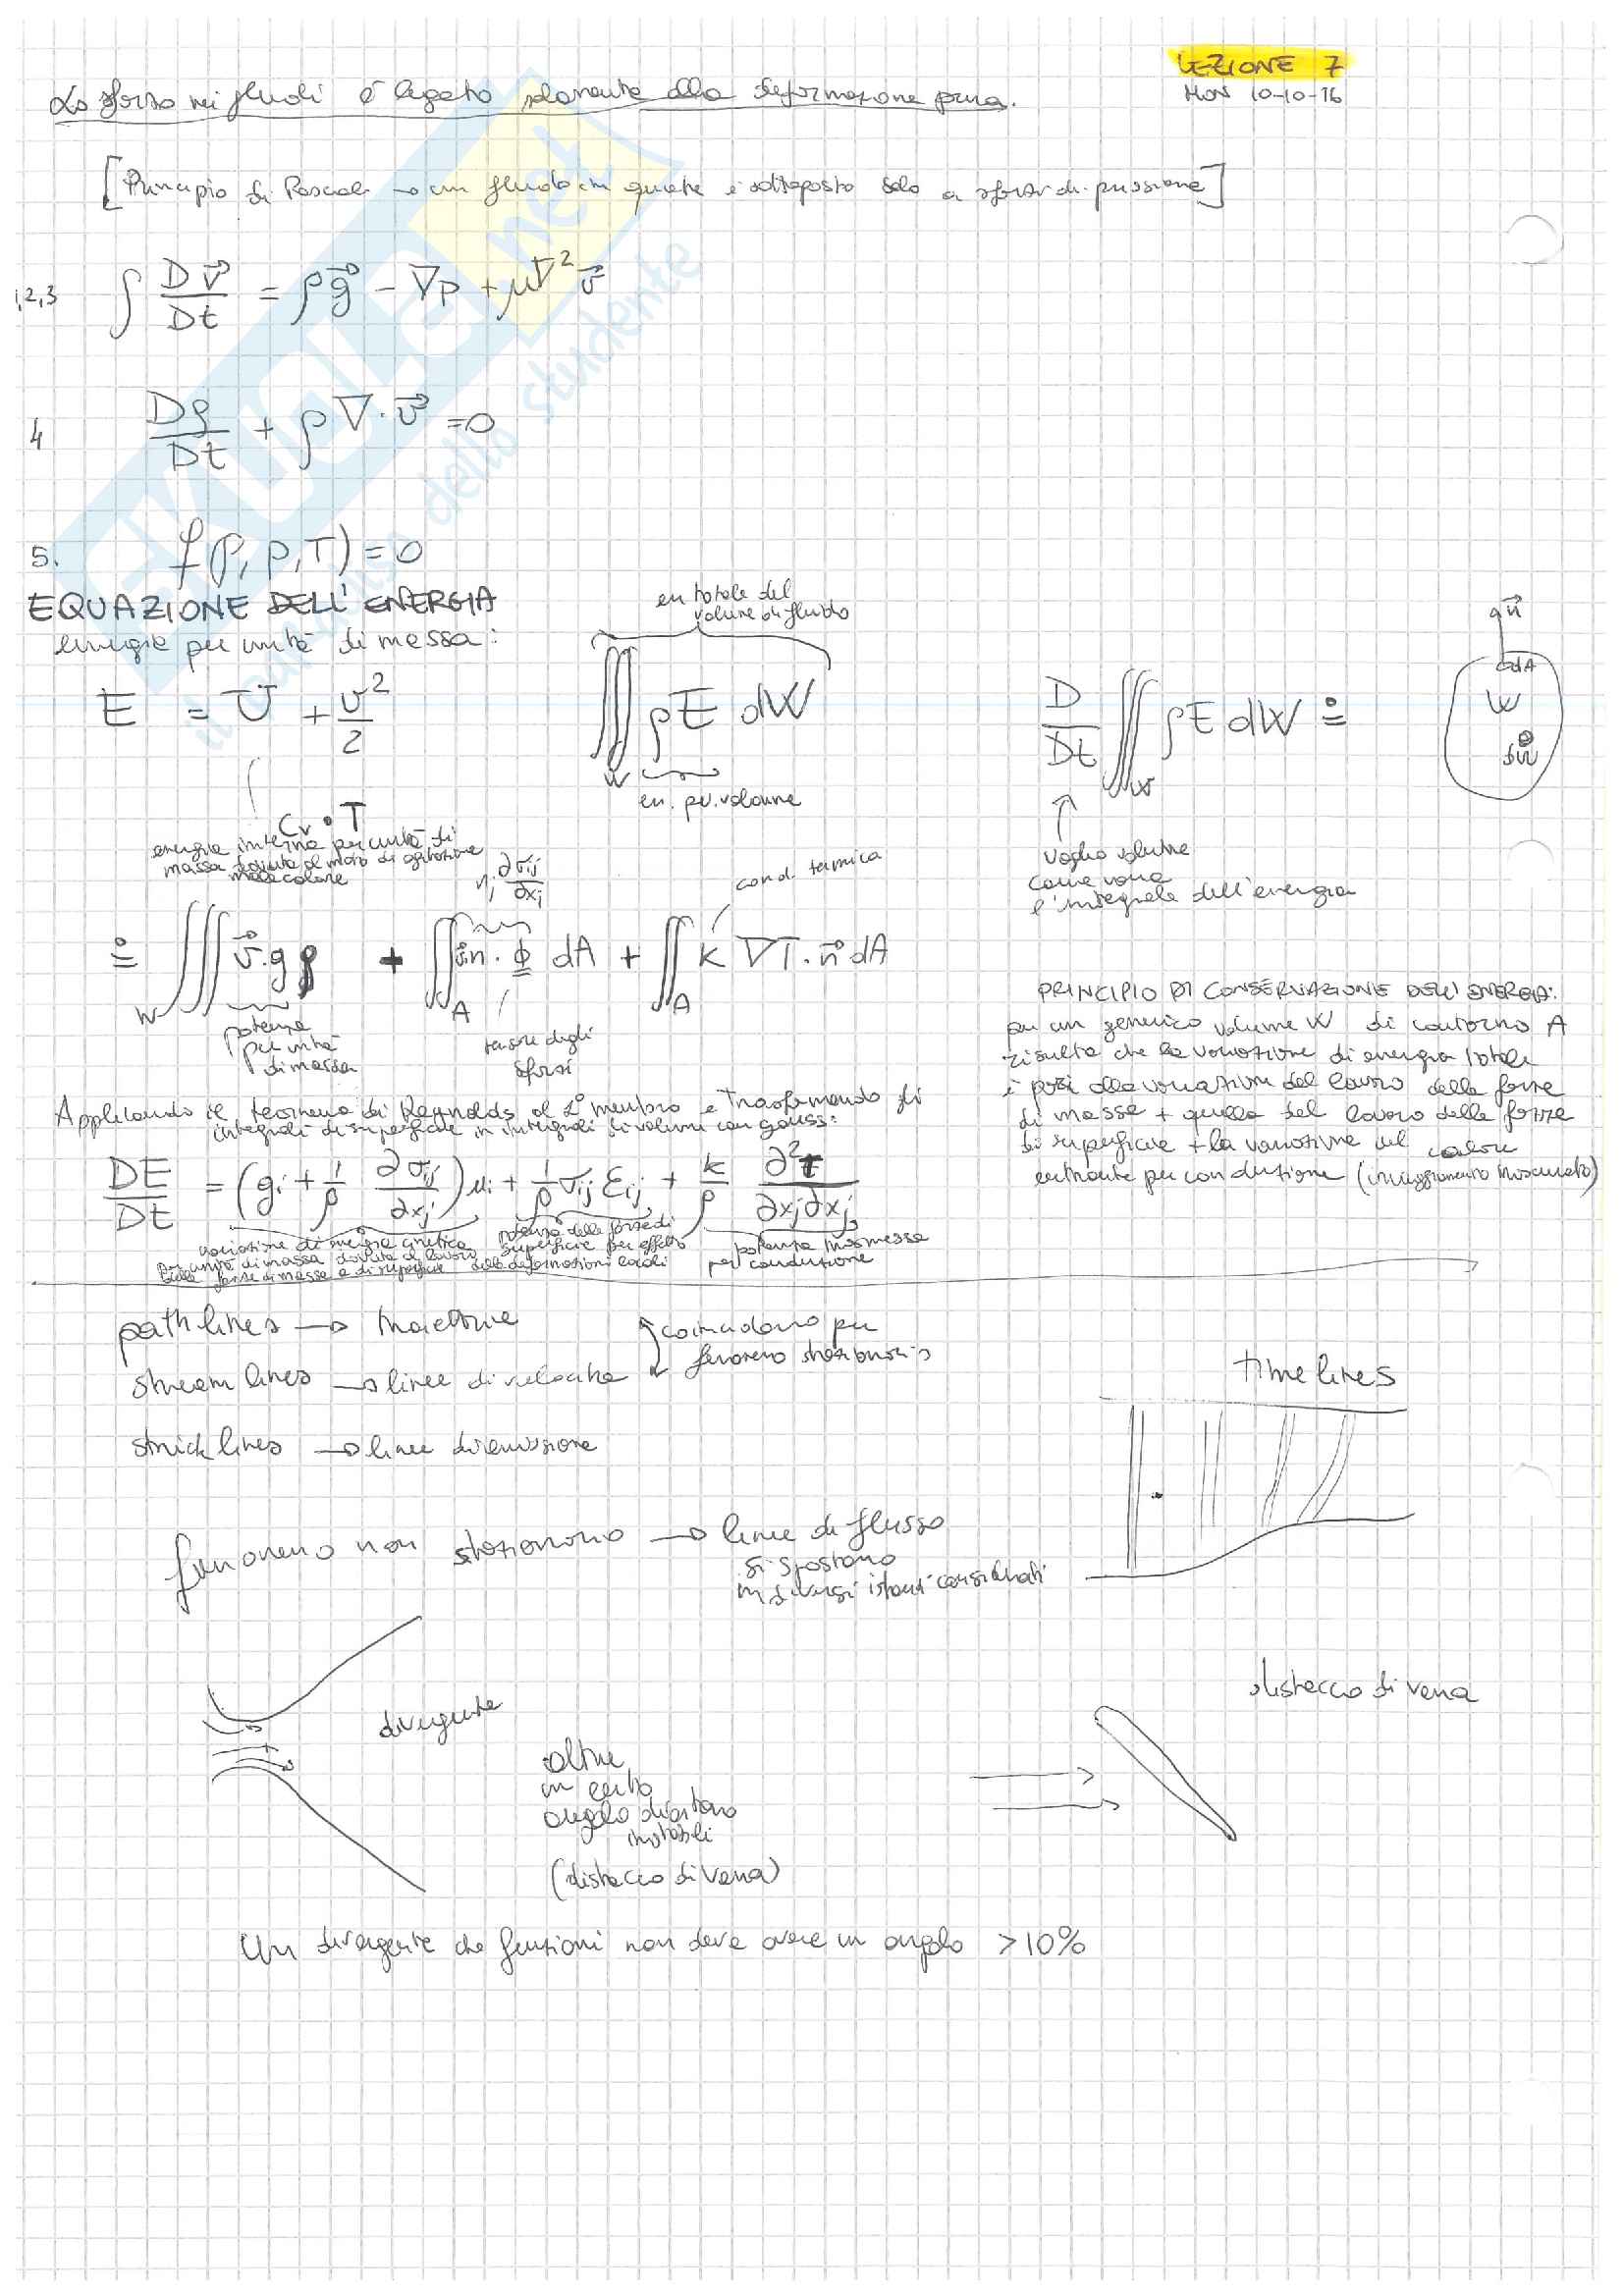 LEZIONE 7
MON 10-10-16
Lo sforzo nei fluidi è legato solamente alla deformazione pura.
[Principio di Pascal → un fluido in quiete è sottoposto solo a sforzi di pressione]
1,2,3 ρ Dv⃗/Dt = ρg⃗ - ∇p + μ∇²v⃗
4 Dρ/Dt + ρ∇·v⃗ = 0
5. f(ρ, p, T) = 0
EQUAZIONE DELL'ENERGIA
energia per unità di massa:
E = U + v²/2
Cv · T
energia interna per unità di
massa dovuta al moto di agitazione
molecolare
en totale del
volume di fluido
∭_W ρE dW
en. per. volume
D/Dt ∭_W ρE dW ≐
Voglio vedere
come varia
l'integrale dell'energia
n⃗
dA
W
≐ ∭_W v⃗·gρ + ∬_A · Φ dA + ∬_A k ∇T·n⃗ dA
potenza
per unità
di massa
∂σij/∂xj
tensore degli
sforzi
cond. termica
PRINCIPIO DI CONSERVAZIONE DELL'ENERGIA:
per un generico volume W di contorno A
risulta che la variazione di energia totale
è pari alla variazione del lavoro delle forze
di massa + quella del lavoro delle forze
di superficie + la variazione del calore
entrante per conduzione (irraggiamento trascurato)
Applicando il teorema di Reynolds al 1° membro e trasformando gli
integrali di superficie in integrali di volume con gauss:
DE/Dt = (gi + 1/ρ ∂σij/∂xj) ui + 1/ρ σij εij + k/ρ ∂²T/∂xj∂xj
variazione di energia cinetica
per unità di massa dovuta al lavoro
delle forze di massa e di superficie
potenza delle forze di
superficie per effetto
delle deformazioni locali
potenza trasmessa
per conduzione
path lines → traiettorie
stream lines → linee di velocità
coincidono per
fenomeno stazionario
strick lines → linee di emissione
time lines
fenomeno non stazionario → linee di flusso
si spostano
in diversi istanti considerati
divergente
oltre
un certo
angolo diventano
instabili
(distacco di vena)
distacco di vena
Un divergente che funzioni non deve avere un angolo > 10%